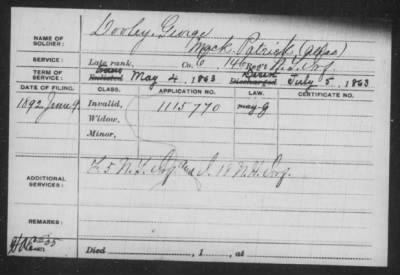 NAME OF SOLDIER: Dooley George
Mack, Patrick (alias)
SERVICE: Late rank, Co. G 146 Reg't N.Y. Inf.
TERM OF SERVICE: Enlisted May 4, 1863 Discharged July 5, 1863
DATE OF FILING. CLASS. APPLICATION NO. LAW. CERTIFICATE NO.
1892 June 9. Invalid, 1115770 may-G
Widow,
Minor,
ADDITIONAL SERVICES: K 5 N.Y. Inf I. 18 N.H. Inf.
REMARKS:
Died , 1 , at